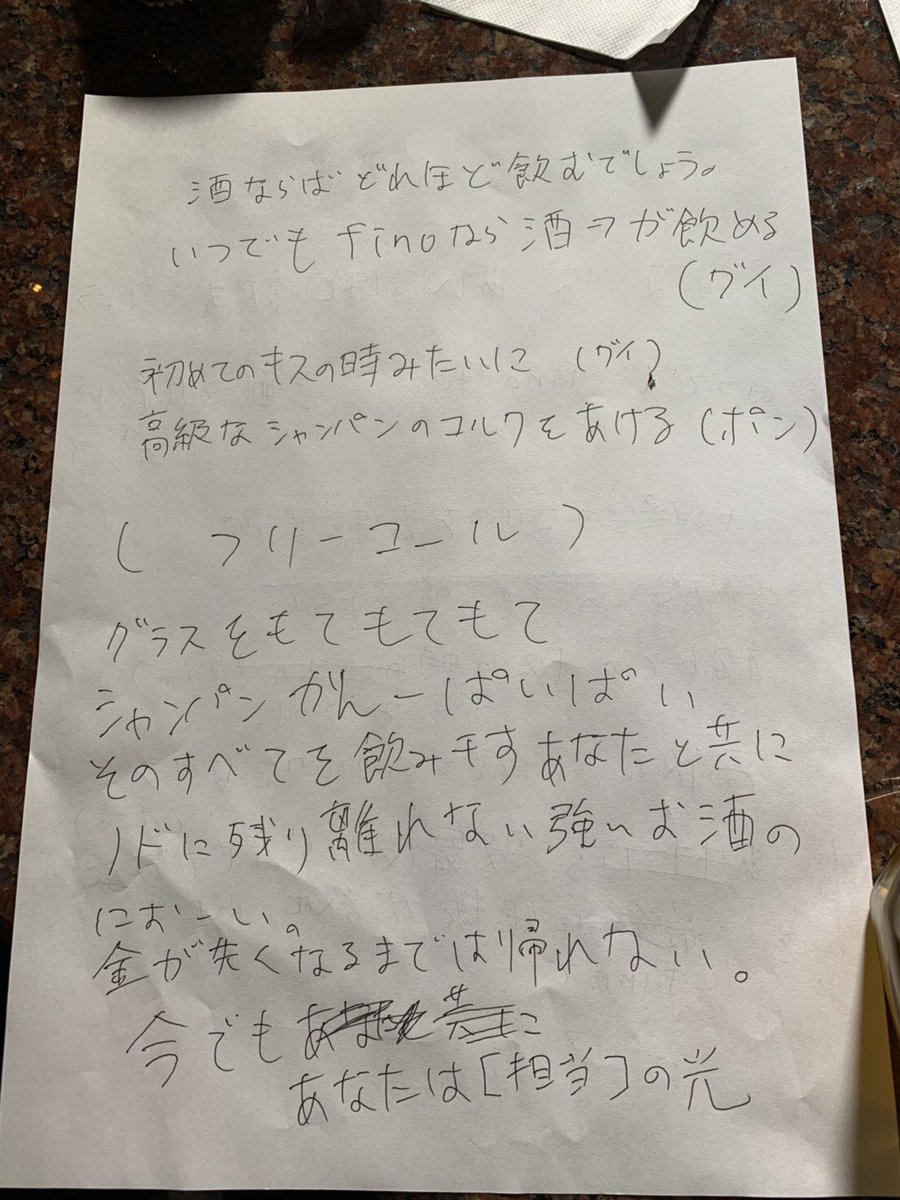 酒ならばどれほど飲むでしょう。
いつでもfinoなら酒ㄱが飲める
(グイ)
初めてのキスの時みたいに (グイ)
高級なシャンパンのコルクをあける (ポン)
( フリーコール )
グラスをもてもてもて
シャンパンかんーぱいぱい
そのすべてを飲み干すあなたと共に
ノドに残り離れない強いお酒の
におーい。
金が失くなるまでは帰れない。
今でも
あなたは[担当]の光